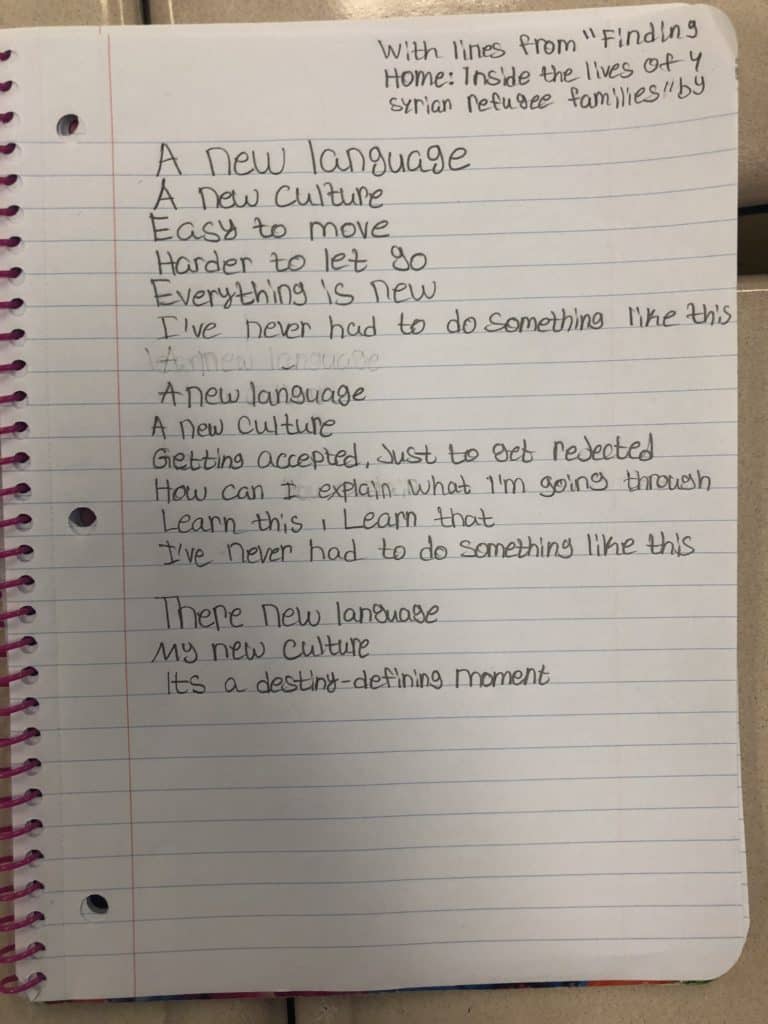 With lines from "Finding
Home: Inside the lives of 4
syrian refugee families" by
A new language
A new culture
Easy to move
Harder to let go
Everything is new
I've never had to do something like this
A new language
A new language
A new culture
Getting accepted, Just to get rejected
How can I explain what I'm going through
Learn this, Learn that
I've never had to do something like this
There new language
My new culture
Its a destiny-defining moment